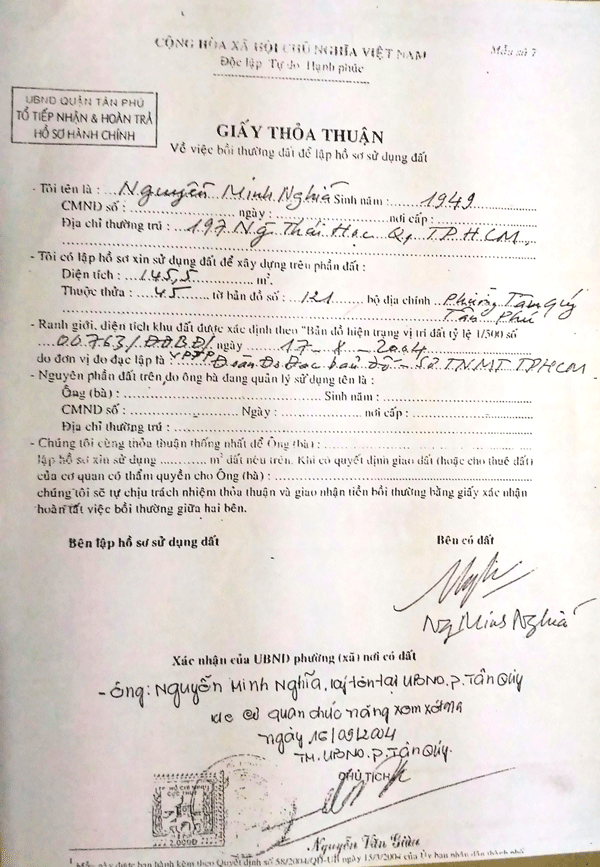 CỘNG HÒA XÃ HỘI CHỦ NGHĨA VIỆT NAM
Mẫu số 7
Độc lập Tự do Hạnh phúc
UBND QUẬN TÂN PHÚ
TỔ TIẾP NHẬN & HOÀN TRẢ
HỒ SƠ HÀNH CHÍNH
GIẤY THỎA THUẬN
Về việc bồi thường đất để lập hồ sơ sử dụng đất
- Tôi tên là : Nguyễn Minh Nghĩa Sinh năm : 1949
CMND số : ngày : nơi cấp :
Địa chỉ thường trú : 197 Ng Thái Học Q1 TPHCM.
- Tôi có lập hồ sơ xin sử dụng đất để xây dựng trên phần đất :
Diện tích : 145,5 m².
Thuộc thửa : 45 tờ bản đồ số : 121 bộ địa chính Phường Tân Quý
Tân Phú
- Ranh giới, diện tích khu đất được xác định theo "Bản đồ hiện trạng vị trí đất tỷ lệ 1/500 số
00763/ĐĐBĐ/ ngày 17-8-2004
do đơn vị đo đạc lập là Đoàn Đo Đạc bản đồ - Sở TNMT TPHCM.
- Nguyên phần đất trên do ông bà đang quản lý sử dụng tên là :
Ông (bà) : Sinh năm :
CMND số : Ngày : nơi cấp :
Địa chỉ thường trú :
- Chúng tôi cùng thỏa thuận thống nhất để Ông (bà) :
lập hồ sơ xin sử dụng m² đất nêu trên. Khi có quyết định giao đất (hoặc cho thuê đất)
của cơ quan có thẩm quyền cho Ông (bà) :
chúng tôi sẽ tự chịu trách nhiệm thỏa thuận và giao nhận tiền bồi thường bằng giấy xác nhận
hoàn tất việc bồi thường giữa hai bên.
Bên lập hồ sơ sử dụng đất Bên có đất
Ng Minh Nghĩa
Xác nhận của UBND phường (xã) nơi có đất
- Ông: Nguyễn Minh Nghĩa, ký tên tại UBND.P.Tân Quý
quan chức năng xem xét
ngày 16/09/2004
TM.UBND.P.Tân Quý.
CHỦ TỊCH
2.000Đ
Nguyễn Văn Giàu
Mẫu này được ban hành kèm theo Quyết định số 58/2004/QĐ-UB ngày 15/3/2004 của Ủy ban nhân dân thành phố